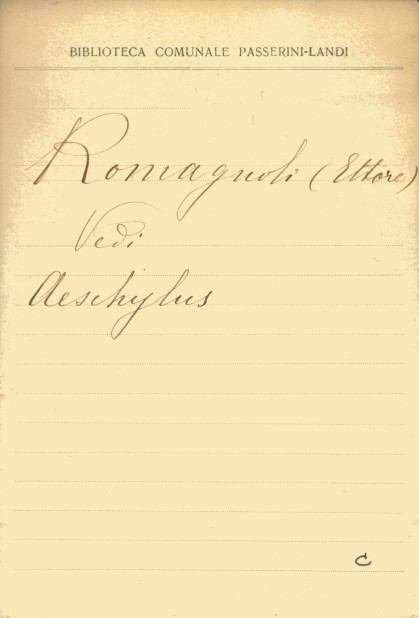 BIBLIOTECA COMUNALE PASSERINI-LANDI
Romagnoli (Ettore)
Vedi
Aeschylus
C